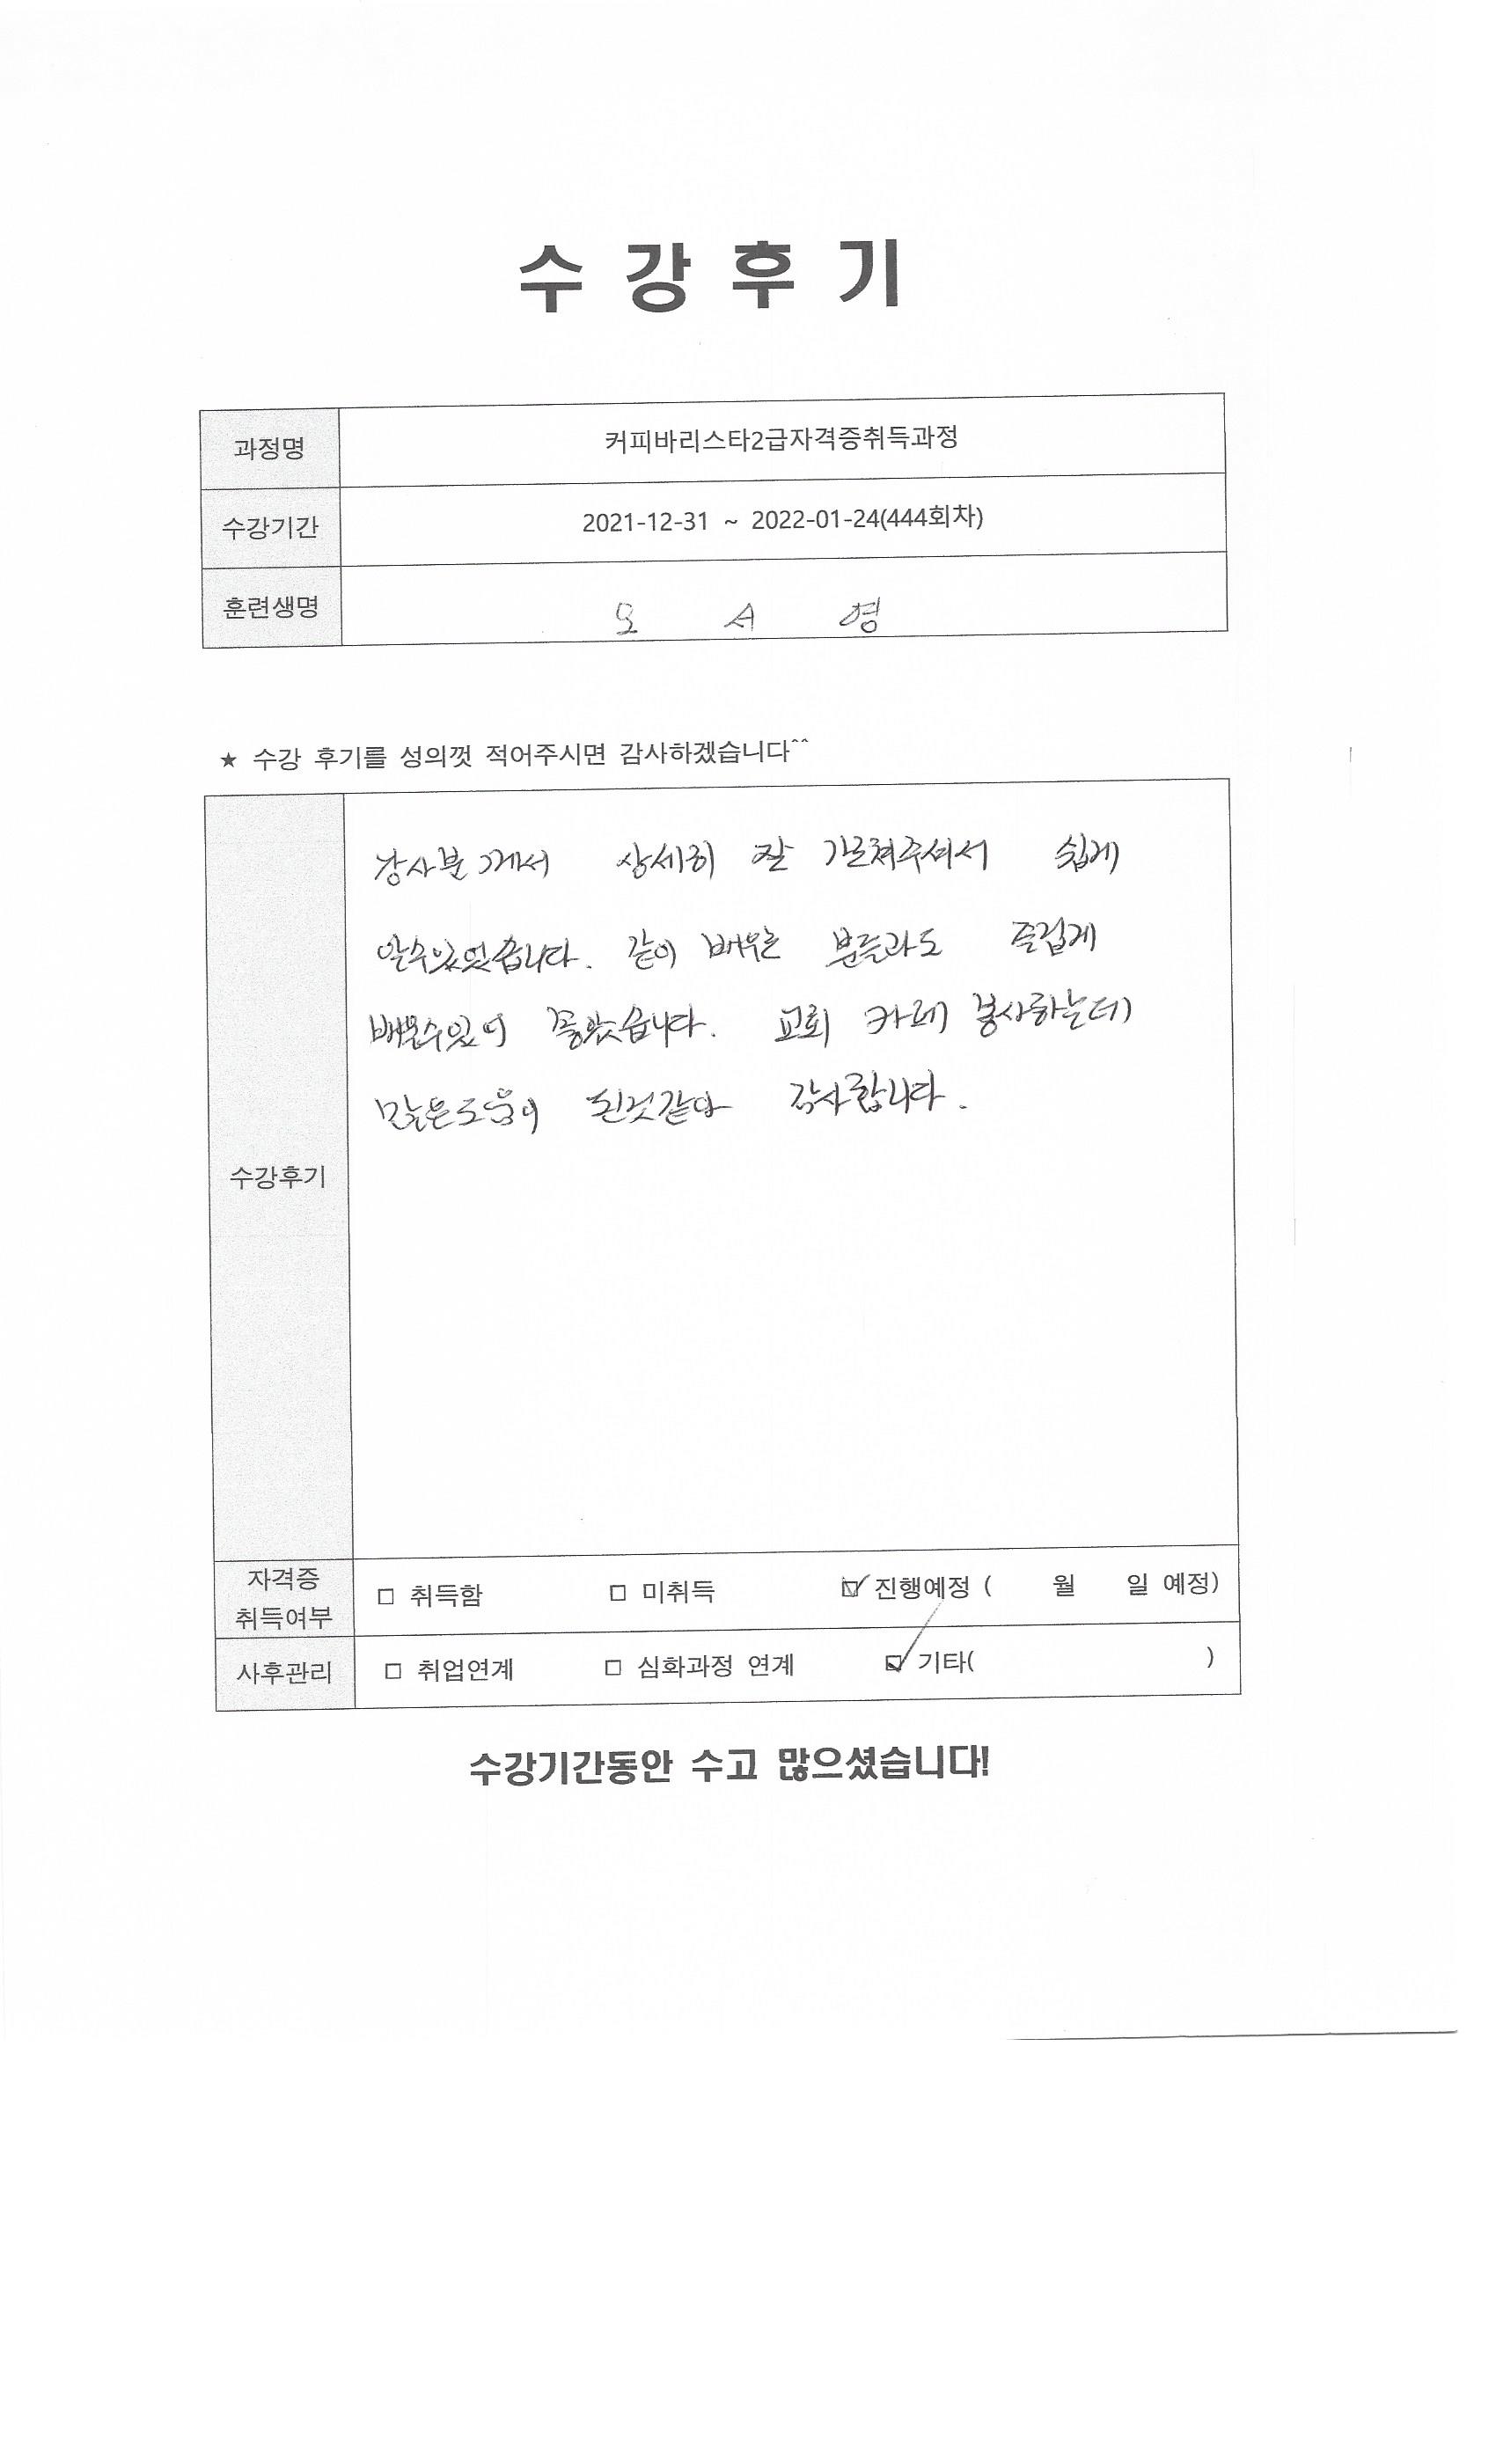 수 강 후 기
과정명 커피바리스타2급자격증취득과정
수강기간 2021-12-31 ~ 2022-01-24(444회차)
훈련생명 오 서 영
★ 수강 후기를 성의껏 적어주시면 감사하겠습니다^^
강사분께서 상세히 잘 가르쳐주셔서 쉽게
알수있었습니다. 같이 배우는 분들과도 즐겁게
배울수있어 좋았습니다. 교회 카페 봉사하는데
많은도움이 된것같아 감사합니다.
수강후기
자격증
취득여부
□ 취득함 □ 미취득 ☑ 진행예정 ( 월 일 예정)
사후관리 □ 취업연계 □ 심화과정 연계 ☑ 기타( )
수강기간동안 수고 많으셨습니다!